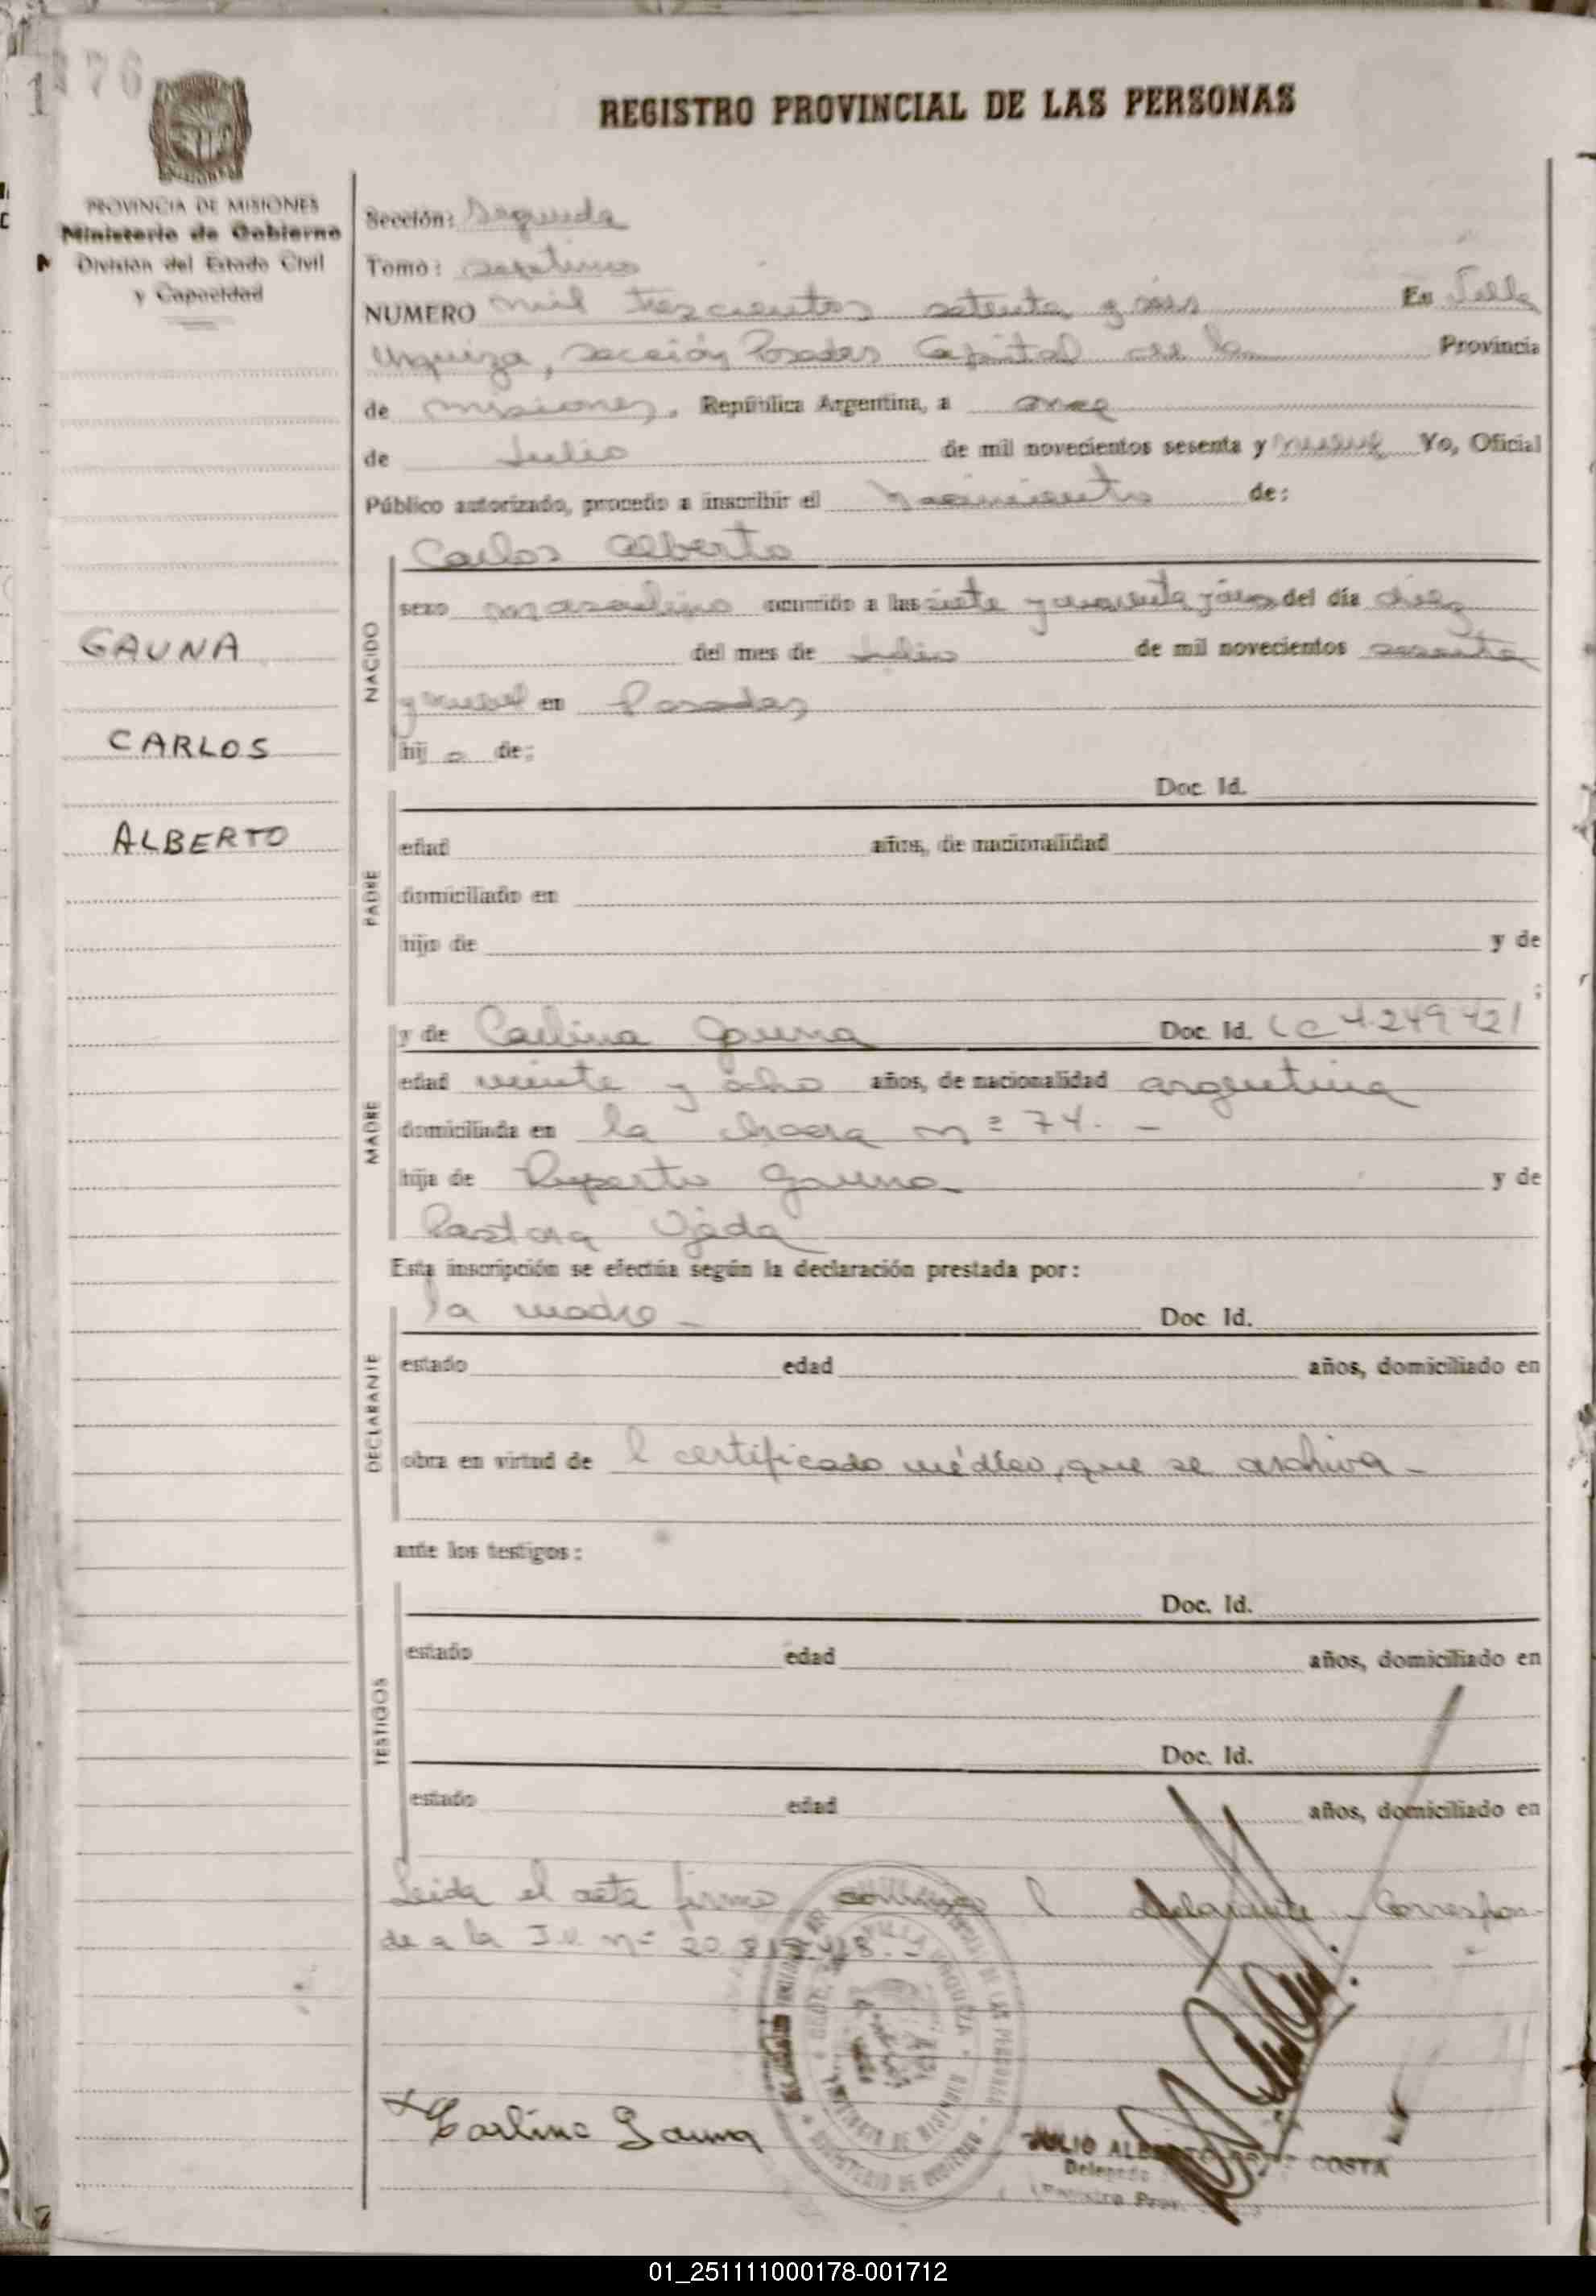 1376
REGISTRO PROVINCIAL DE LAS PERSONAS
PROVINCIA DE MISIONES
Ministerio de Gobierno
División del Estado Civil
y Capacidad
Sección: Segunda
Tomo: septimo
NUMERO mil trescientos setenta y seis En Villa
Urquiza, sección Posadas Capital de la Provincia
de misiones, República Argentina, a once
de Julio de mil novecientos sesenta y nueve Yo, Oficial
Público autorizado, procedo a inscribir el nacimiento de:
GAUNA
CARLOS
ALBERTO
NACIDO
Carlos Alberto
sexo masculino ocurrido a las siete y cuarenta y cinco del día diez
del mes de Julio de mil novecientos sesenta
y nueve en Posadas
hij o de:
PADRE
Doc. Id.
edad años, de nacionalidad
domiciliado en
hijo de y de
;
MADRE
y de Carlina Gauna Doc. Id. LC 4.249.421
edad veinte y ocho años, de nacionalidad argentina
domiciliada en la chacra nº 74. -
hija de Ruperto Gauna y de
Pastora Ojeda
Esta inscripción se efectúa según la declaración prestada por:
DECLARANTE
la madre - Doc. Id.
estado edad años, domiciliado en
obra en virtud de l certificado médico, que se archiva -
ante los testigos:
TESTIGOS
Doc. Id.
estado edad años, domiciliado en
Doc. Id.
estado edad años, domiciliado en
Leida el acta firma conmigo l declarante - Correspon-
de a la I.U. nº
VILLA URQUIZA
MINISTERIO DE GOBIERNO
Carlina Gauna
JULIO ALBERTO COSTA
Delegado
Registro Prov.
01_251111000178-001712